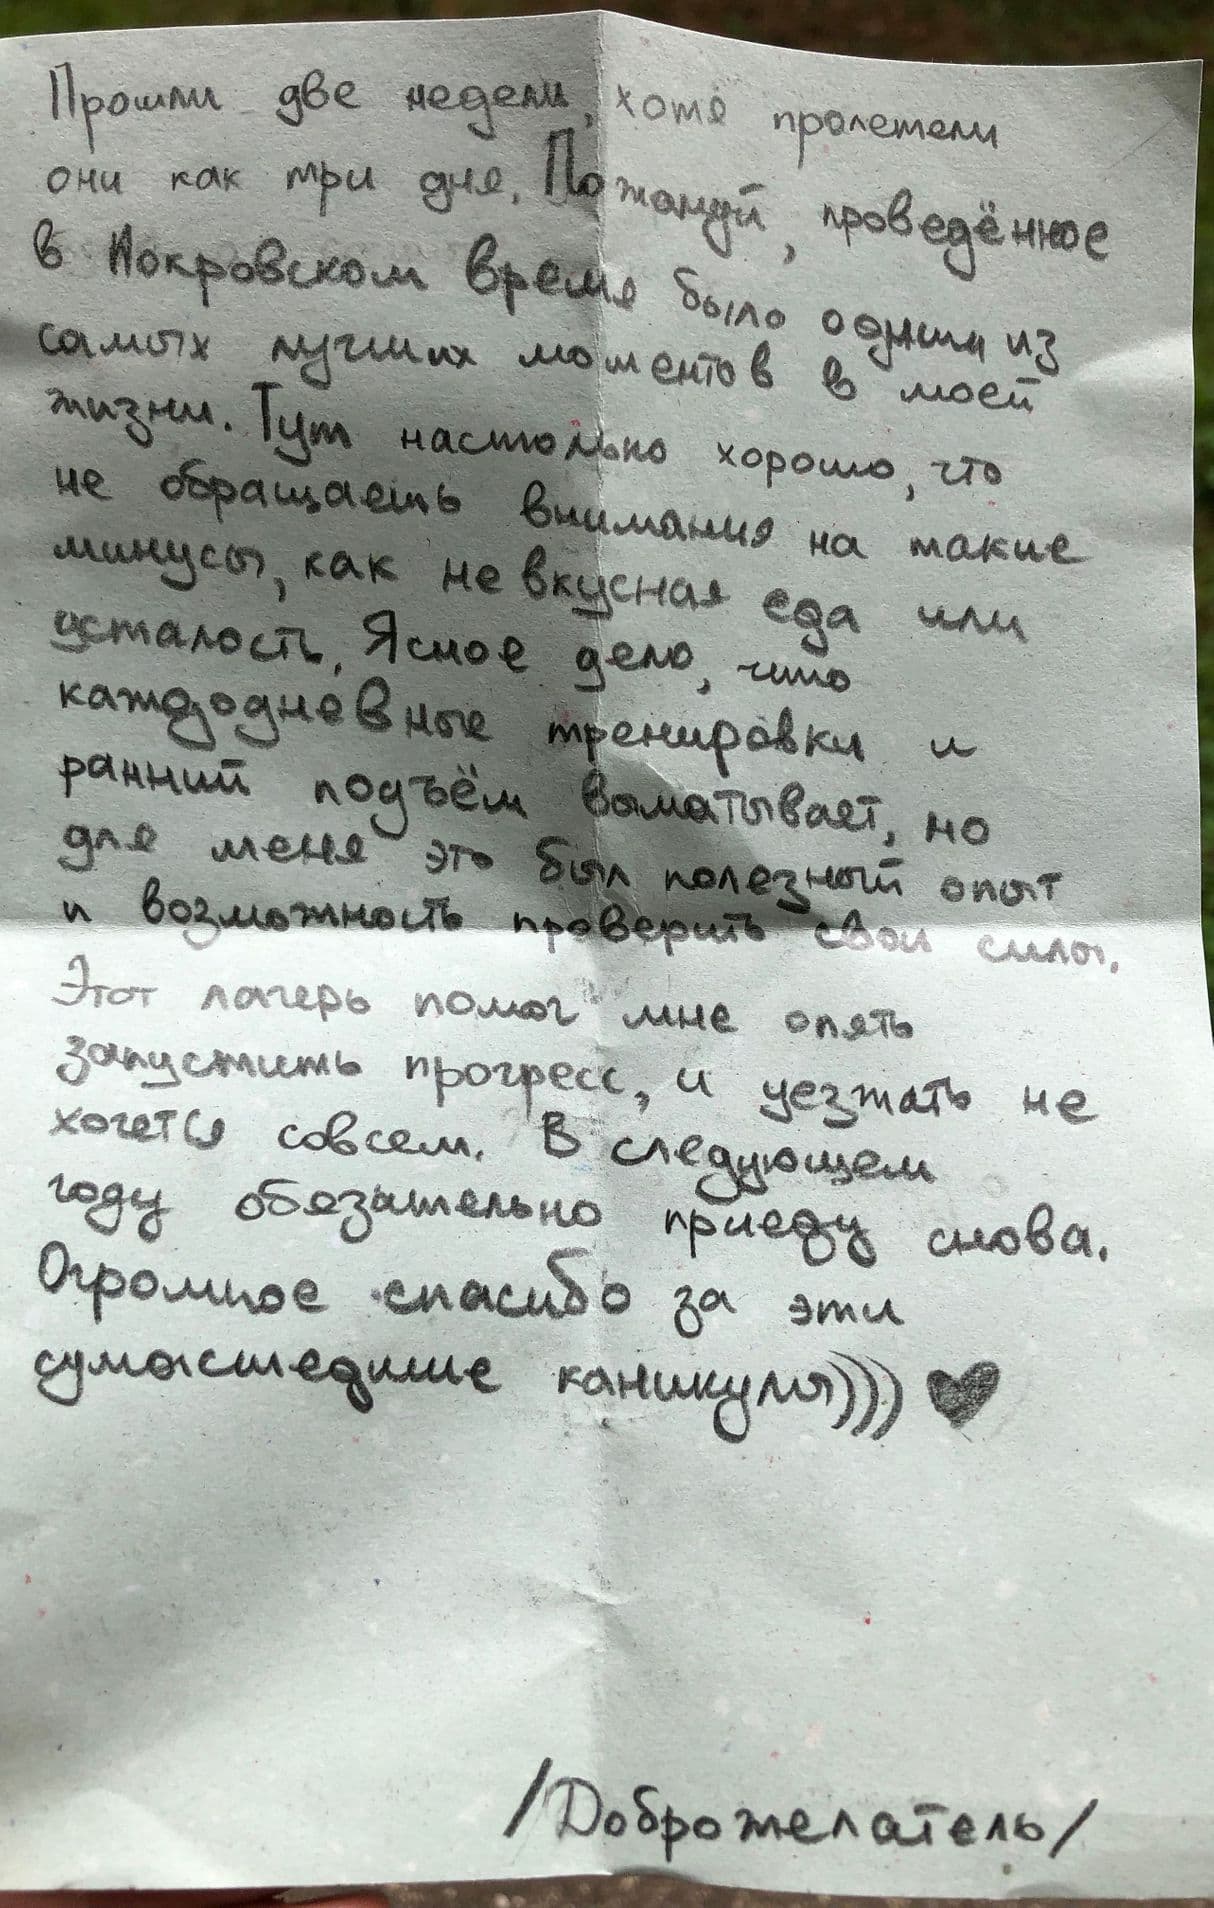 Прошли две недели, хотя пролетели
они как три дня. Пожалуй, проведённое
в Покровском время было одним из
самых лучших моментов в моей
жизни. Тут настолько хорошо, что
не обращаешь внимания на такие
минусы, как не вкусная еда или
усталость. Ясное дело, что
каждодневные тренировки и
ранний подъём выматывает, но
для меня это был полезный опыт
и возможность проверить свои силы.
Этот лагерь помог мне опять
запустить прогресс, и уезжать не
хочется совсем. В следующем
году обязательно приеду снова.
Огромное спасибо за эти
сумасшедшие каникулы))) ♥
/Доброжелатель/